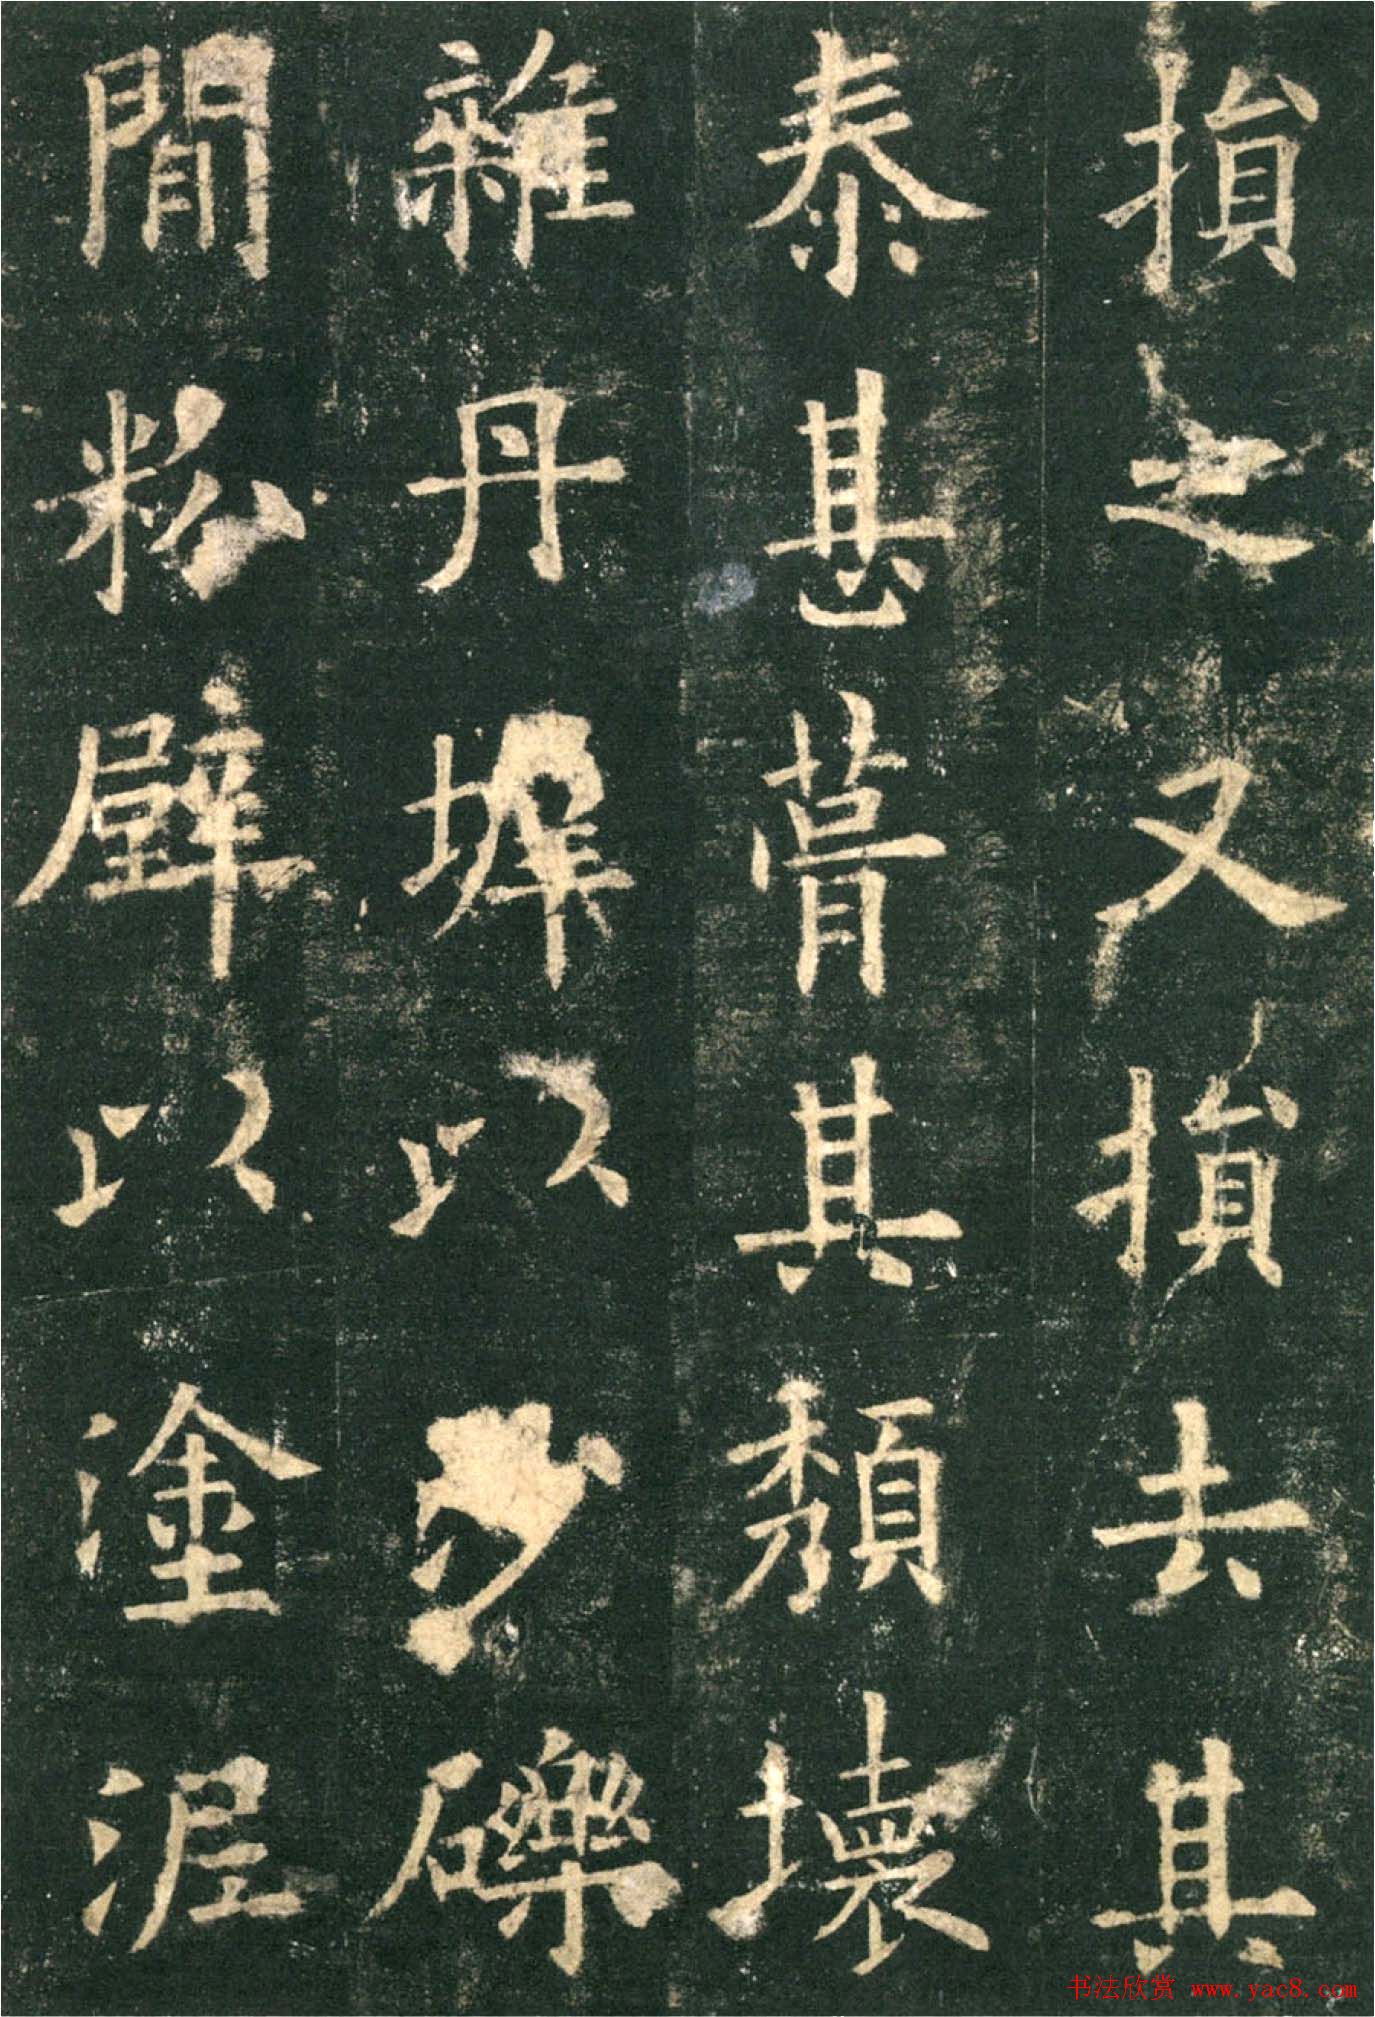 損之又損去其
泰甚葺其頹壞
雜丹墀以沙礫
間粉壁以塗泥
书法欣赏 www.yac8.com